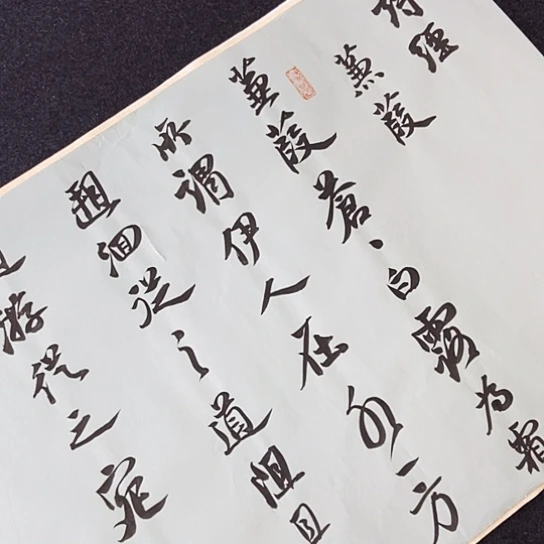 詩經
蒹葭
蒹葭蒼、白露為霜
所謂伊人在水一方
遡洄從之道阻且
游從之宛